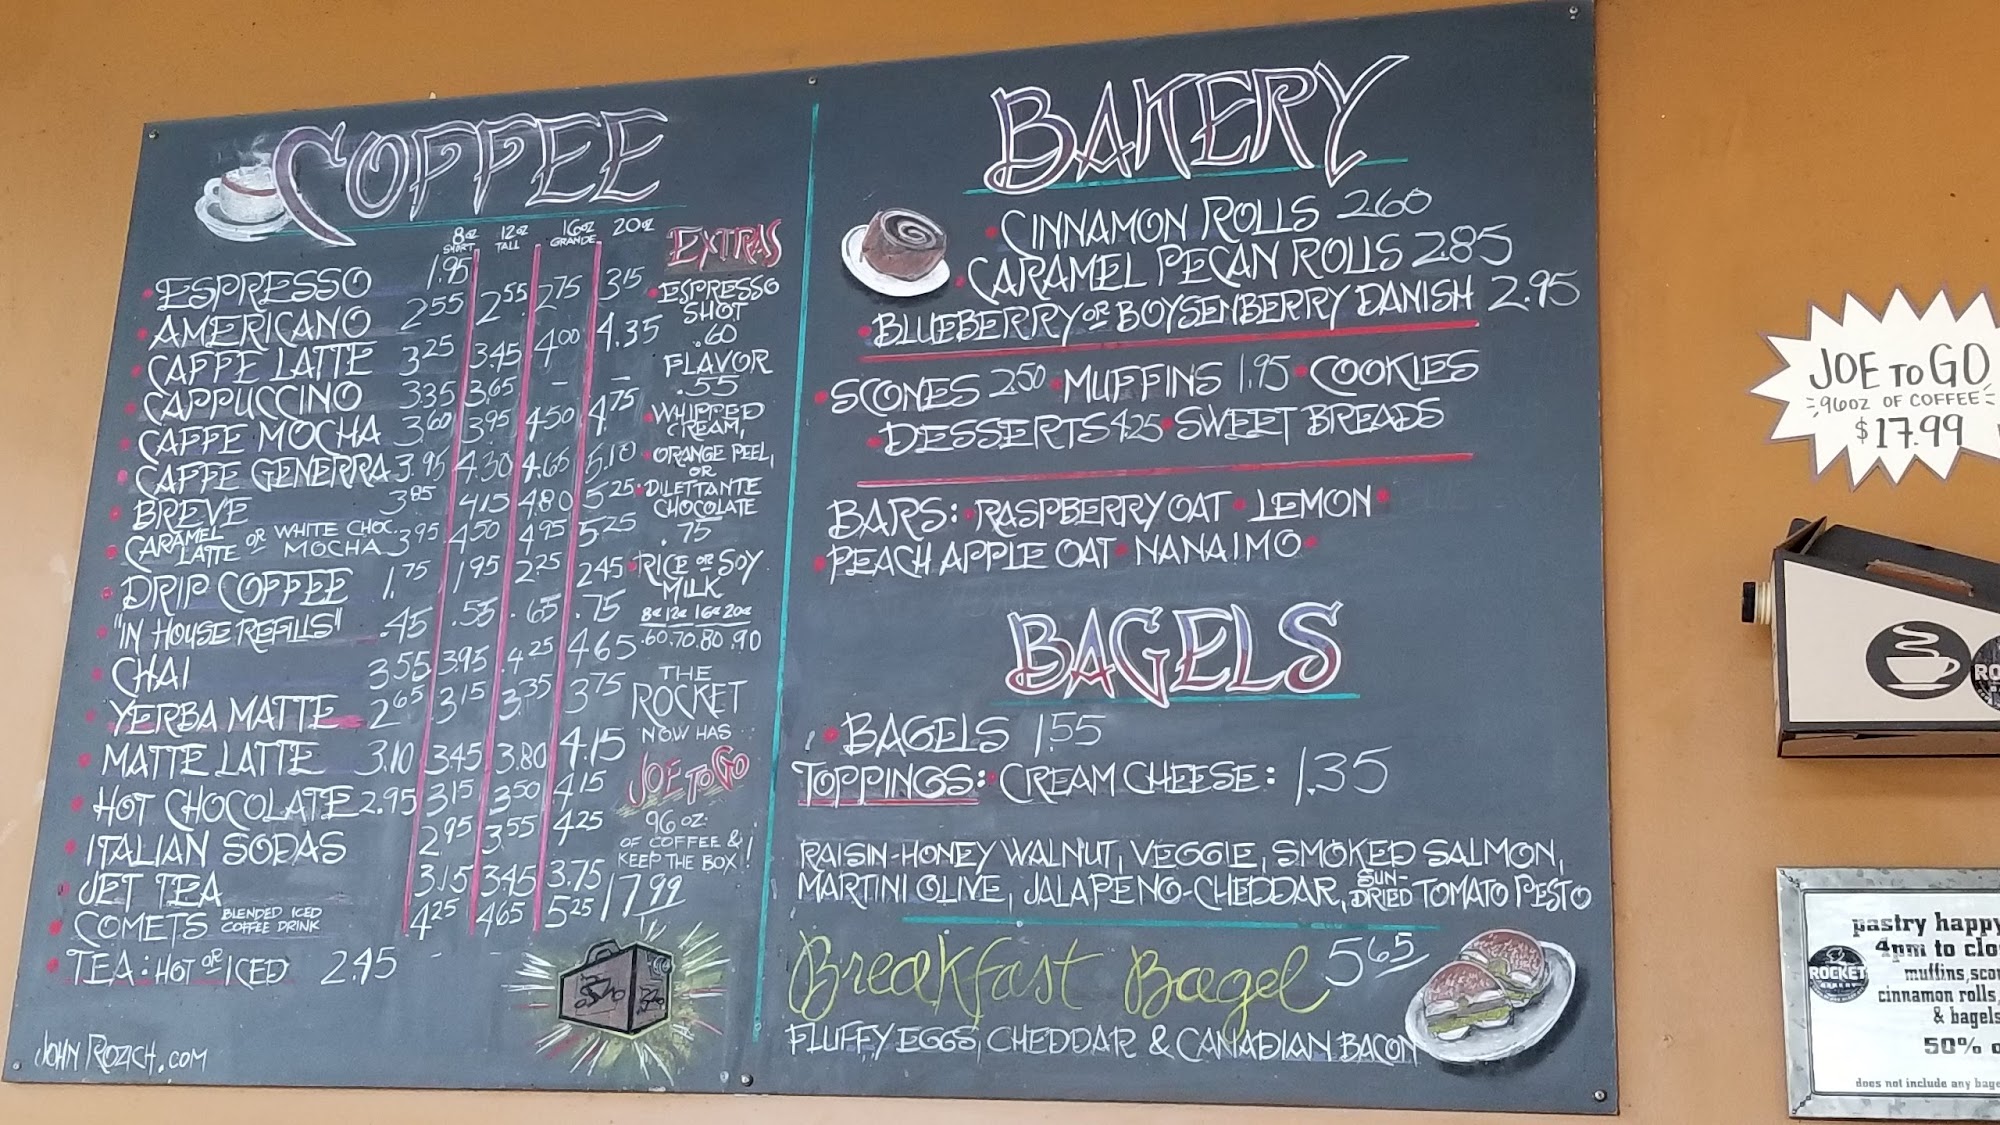 COFFEE
8oz SHORT 12oz TALL 16oz GRANDE 20oz
ESPRESSO 1.95
AMERICANO 2.55 2.55 2.75 3.15
CAFFE LATTE 3.25 3.45 4.00 4.35
CAPPUCCINO 3.35 3.65 – –
CAFFE MOCHA 3.60 3.95 4.50 4.75
CAFFE GENERRA 3.95 4.30 4.65 5.10
BREVE 3.85 4.15 4.80 5.25
CARAMEL LATTE OR WHITE CHOC. MOCHA 3.95 4.50 4.95 5.25
DRIP COFFEE 1.75 1.95 2.25 2.45
"IN HOUSE REFILLS" .45 .55 .65 .75
CHAI 3.55 3.95 4.25 4.65
YERBA MATTE 2.65 3.15 3.35 3.75
MATTE LATTE 3.10 3.45 3.80 4.15
HOT CHOCOLATE 2.95 3.15 3.50 4.15
ITALIAN SODAS 2.95 3.55 4.25
JET TEA 3.15 3.45 3.75
COMETS BLENDED ICED COFFEE DRINK 4.25 4.65 5.25
TEA: HOT OR ICED 2.45 – –
JOHN ROZICH.COM
EXTRAS
ESPRESSO
SHOT
.60
FLAVOR
.55
WHIPPED
CREAM,
ORANGE PEEL,
OR
DILETTANTE
CHOCOLATE
.75
RICE OR SOY
MILK
8oz 12oz 16oz 20oz
.60 .70 .80 .90
THE
ROCKET
NOW HAS
JOE TO GO
96 OZ.
OF COFFEE &
KEEP THE BOX!
17.99
BAKERY
CINNAMON ROLLS 2.60
CARAMEL PECAN ROLLS 2.85
BLUEBERRY OR BOYSENBERRY DANISH 2.95
SCONES 2.50 MUFFINS 1.95 COOKIES
DESSERTS 4.25 SWEET BREADS
BARS: RASPBERRY OAT LEMON
PEACH APPLE OAT NANAIMO
BAGELS
BAGELS 1.55
TOPPINGS: CREAM CHEESE: 1.35
RAISIN-HONEY WALNUT, VEGGIE, SMOKED SALMON,
MARTINI OLIVE, JALAPENO-CHEDDAR, SUN-DRIED TOMATO PESTO
Breakfast Bagel 5.65
FLUFFY EGGS, CHEDDAR & CANADIAN BACON
JOE TO GO
96OZ OF COFFEE
$17.99
RO
pastry happy
4pm to clo
ROCKET
muffins, sco
cinnamon rolls,
& bagels
50% o
does not include any bage